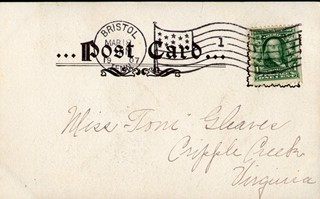 BRISTOL
MAR 
19 07
TENN.
...Post Card...
1
Miss Toni Gleaves
Cripple Creek
Virginia